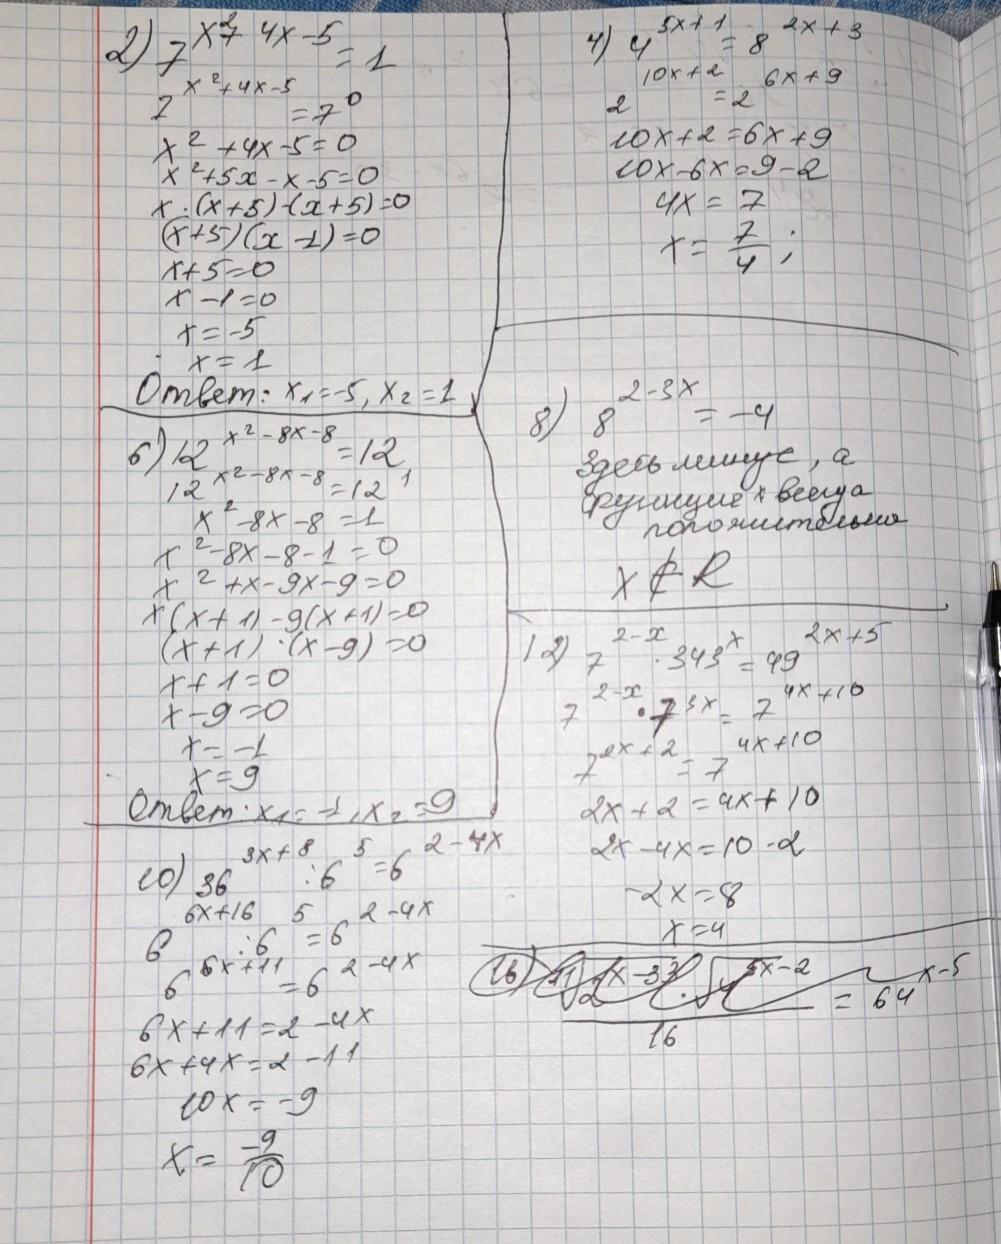 2) 7^(x²+4x-5) = 1
7^(x²+4x-5) = 7^0
x² + 4x - 5 = 0
x² + 5x - x - 5 = 0
x · (x+5) - (x+5) = 0
(x+5)(x-1) = 0
x+5 = 0
x-1 = 0
x = -5
x = 1
Ответ: x₁ = -5, x₂ = 1
6) 12^(x²-8x-8) = 12
12^(x²-8x-8) = 12^1
x² - 8x - 8 = 1
x² - 8x - 8 - 1 = 0
x² + x - 9x - 9 = 0
x(x+1) - 9(x+1) = 0
(x+1) · (x-9) = 0
x+1 = 0
x-9 = 0
x = -1
x = 9
Ответ: x₁ = -1, x₂ = 9
10) 36^(3x+8) : 6^5 = 6^(2-4x)
6^(6x+16) : 6^5 = 6^(2-4x)
6^(6x+11) = 6^(2-4x)
6x+11 = 2-4x
6x+4x = 2-11
10x = -9
x = -9/10
4) 4^(5x+1) = 8^(2x+3)
2^(10x+2) = 2^(6x+9)
10x+2 = 6x+9
10x-6x = 9-2
4x = 7
x = 7/4 ;
8) 8^(2-3x) = -4
Здесь минус, а
функция x всегда
положительна
x ∉ R
12) 7^(2-x) · 343^x = 49^(2x+5)
7^(2-x) · 7^(3x) = 7^(4x+10)
7^(2x+2) = 7^(4x+10)
2x+2 = 4x+10
2x-4x = 10-2
-2x = 8
x = 4
16) = 64^(x-5)
16